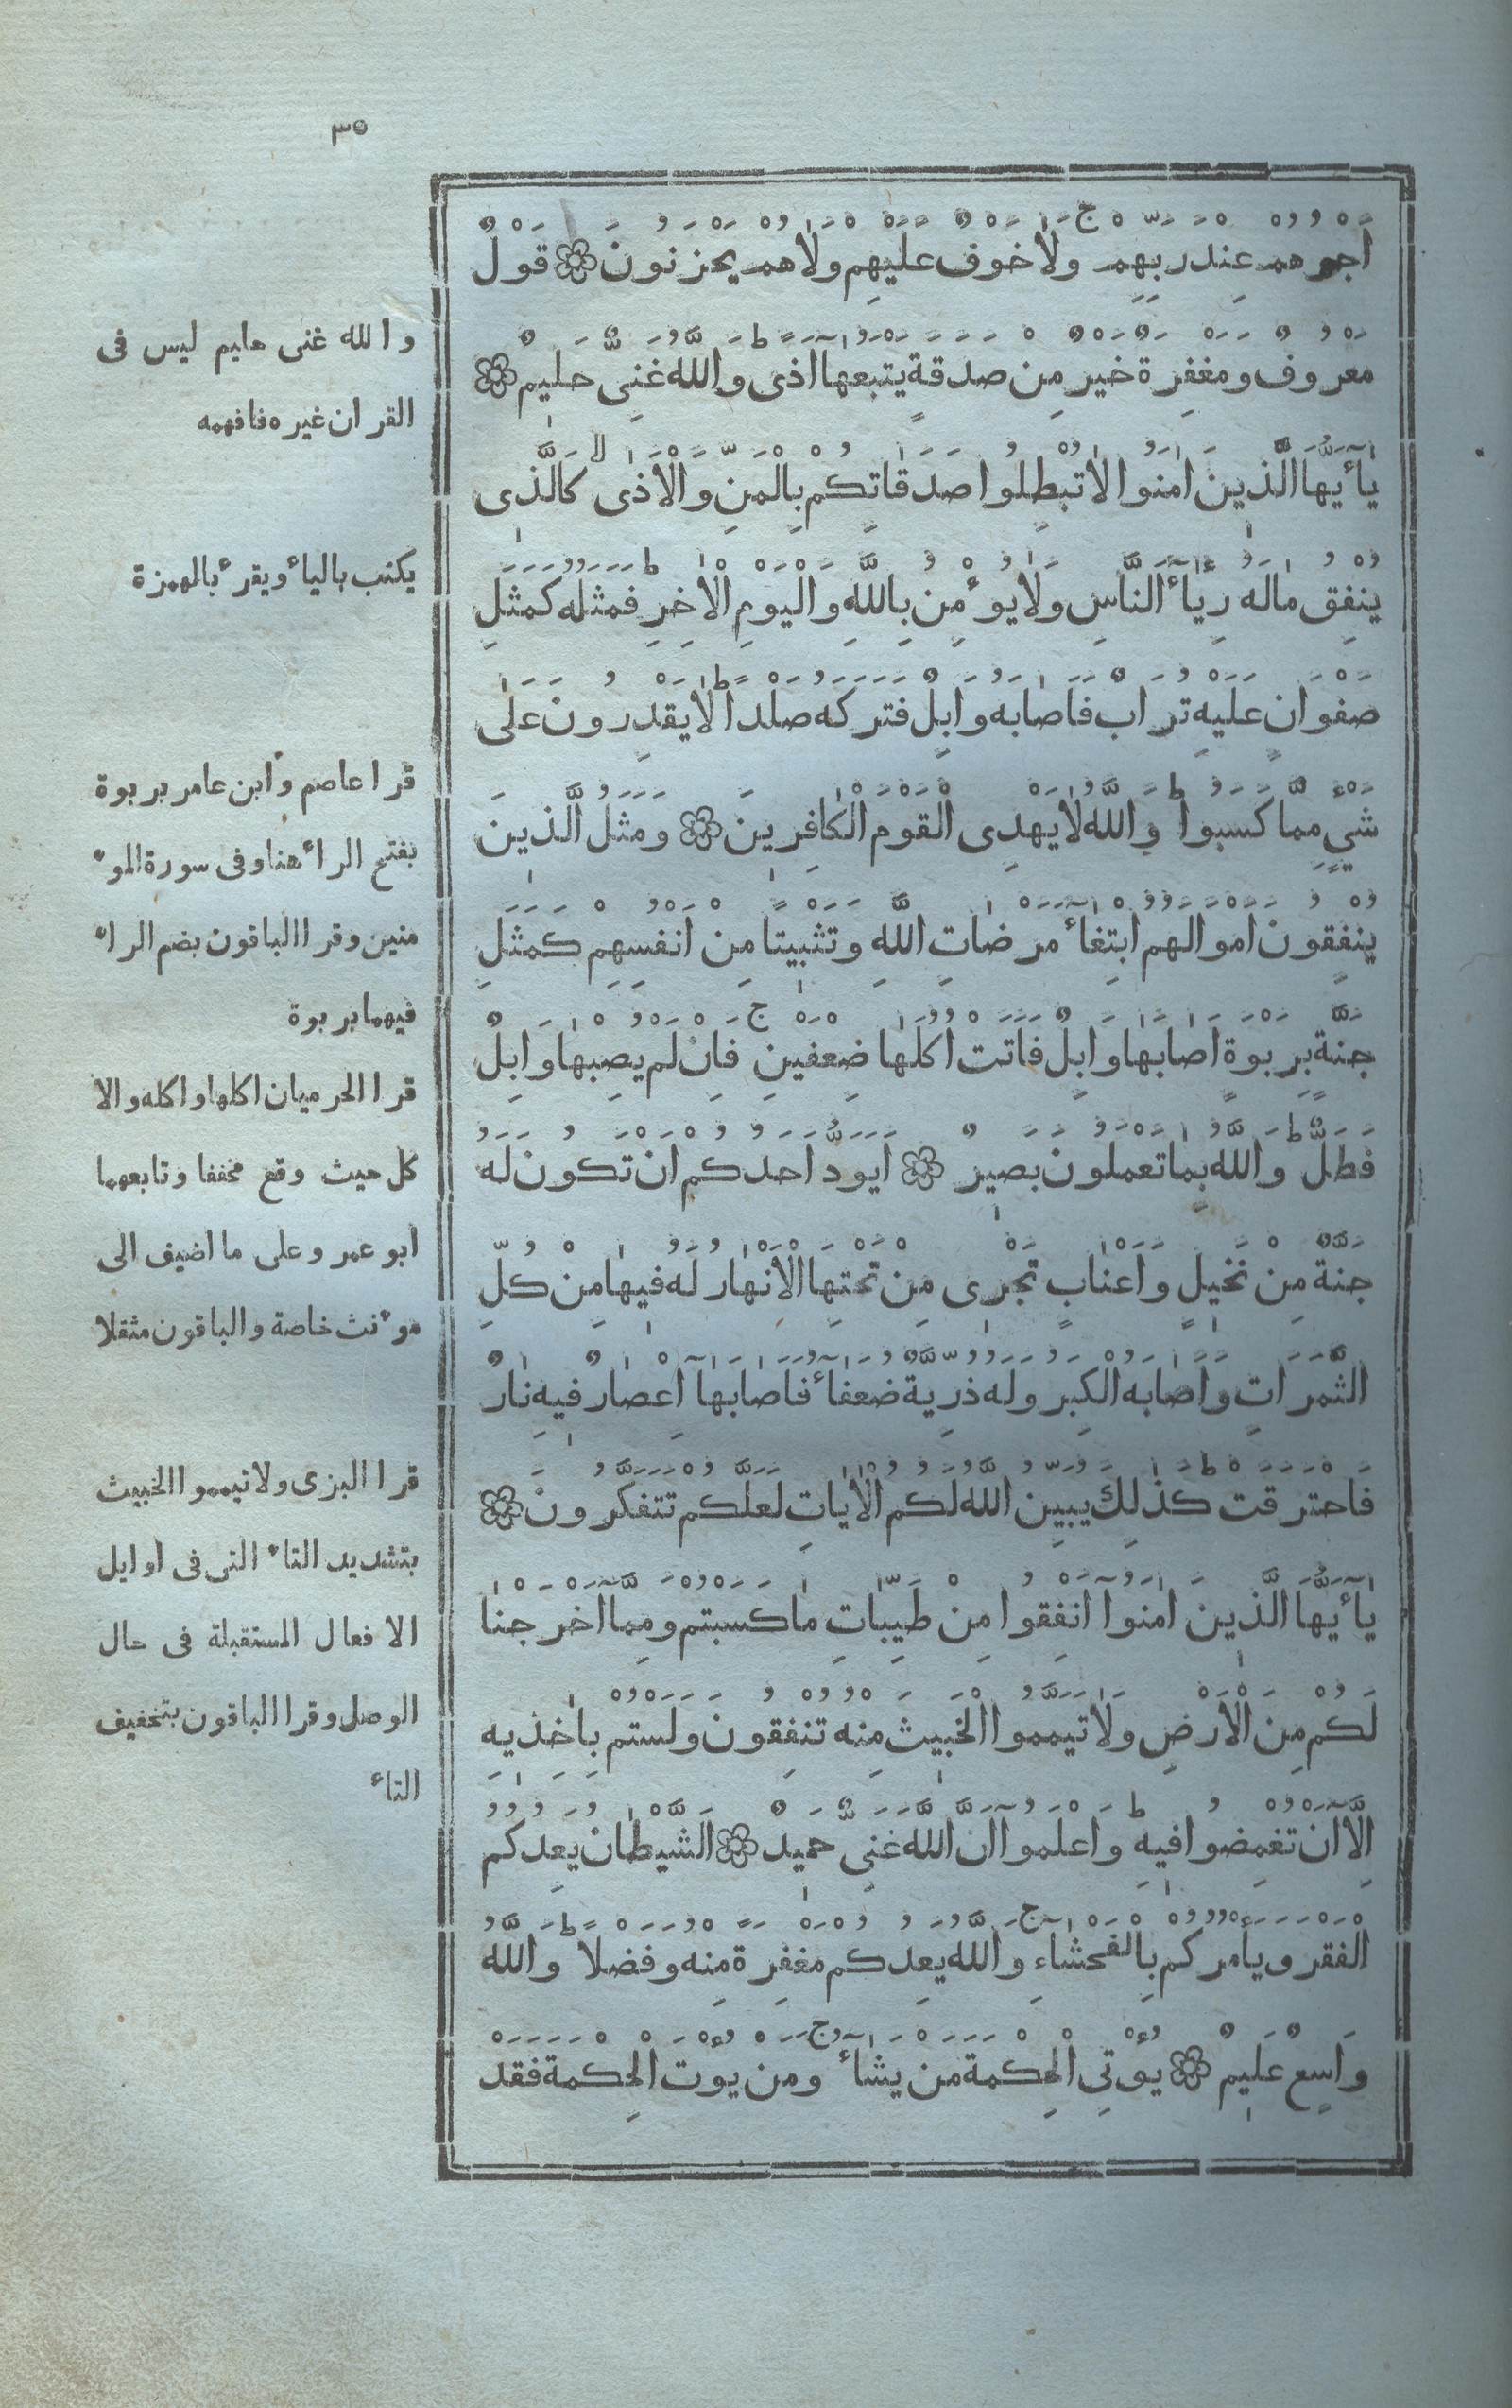 ٣٥
اَجْرُهُمْ عِنْدَ رَبِّهِمْ ج وَلَا خَوْفٌ عَلَيْهِمْ وَلَا هُمْ يَحْزَنُونَ ۞ قَوْلٌ
مَعْرُوفٌ وَمَغْفِرَةٌ خَيْرٌ مِنْ صَدَقَةٍ يَتْبَعُهَا اَذًى ط وَاللَّهُ غَنِىٌّ حَلِيمٌ ۞
يَآءَيُّهَا الَّذِينَ اٰمَنُوا لَا تُبْطِلُوا صَدَقَاتِكُمْ بِالْمَنِّ وَالْاَذٰى لا كَالَّذِى
يُنْفِقُ مَالَهُ رِيَآءَ النَّاسِ وَلَا يُوْءمِنُ بِاللَّهِ وَالْيَوْمِ الْاٰخِرِ ط فَمَثَلُهُ كَمَثَلِ
صَفْوَانٍ عَلَيْهِ تُرَابٌ فَاَصَابَهُ وَابِلٌ فَتَرَكَهُ صَلْدًا ط لَا يَقْدِرُونَ عَلٰى
شَىْءٍ مِمَّا كَسَبُوا ط وَاللَّهُ لَا يَهْدِى الْقَوْمَ الْكَافِرِينَ ۞ وَمَثَلُ الَّذِينَ
يُنْفِقُونَ اَمْوَالَهُمُ ابْتِغَآءَ مَرْضَاتِ اللَّهِ وَتَثْبِيتًا مِنْ اَنْفُسِهِمْ كَمَثَلِ
جَنَّةٍ بِرَبْوَةٍ اَصَابَهَا وَابِلٌ فَاٰتَتْ اُكُلَهَا ضِعْفَيْنِ ج فَاِنْ لَمْ يُصِبْهَا وَابِلٌ
فَطَلٌّ ط وَاللَّهُ بِمَا تَعْمَلُونَ بَصِيرٌ ۞ اَيَوَدُّ اَحَدُكُمْ اَنْ تَكُونَ لَهُ
جَنَّةٌ مِنْ نَخِيلٍ وَاَعْنَابٍ تَجْرِى مِنْ تَحْتِهَا الْاَنْهَارُ لَهُ فِيهَا مِنْ كُلِّ
الثَّمَرَاتِ وَاَصَابَهُ الْكِبَرُ وَلَهُ ذُرِّيَّةٌ ضُعَفَآءُ فَاَصَابَهَآ اِعْصَارٌ فِيهِ نَارٌ
فَاحْتَرَقَتْ ط كَذٰلِكَ يُبَيِّنُ اللَّهُ لَكُمُ الْاٰيَاتِ لَعَلَّكُمْ تَتَفَكَّرُونَ ۞
يَآءَيُّهَا الَّذِينَ اٰمَنُوآ اَنْفِقُوا مِنْ طَيِّبَاتِ مَا كَسَبْتُمْ وَمِمَّآ اَخْرَجْنَا
لَكُمْ مِنَ الْاَرْضِ وَلَا تَيَمَّمُوا الْخَبِيثَ مِنْهُ تُنْفِقُونَ وَلَسْتُمْ بِاٰخِذِيهِ
اِلَّآ اَنْ تُغْمِضُوا فِيهِ ط وَاعْلَمُوآ اَنَّ اللَّهَ غَنِىٌّ حَمِيدٌ ۞ اَلشَّيْطَانُ يَعِدُكُمُ
الْفَقْرَ وَيَأْمُرُكُمْ بِالْفَحْشَآءِ ج وَاللَّهُ يَعِدُكُمْ مَغْفِرَةً مِنْهُ وَفَضْلًا ط وَاللَّهُ
وَاسِعٌ عَلِيمٌ ۞ يُؤْتِى الْحِكْمَةَ مَنْ يَشَآءُ ج وَمَنْ يُؤْتَ الْحِكْمَةَ فَقَدْ
والله غنى حليم ليس فى
القران غيره فافهمه
يكتب بالياء ويقرء بالهمزة
قرا عاصم وابن عامر بربوة
بفتح الراء هنا وفى سورة الموء
منين وقرا الباقون بضم الراء
فيهما بربوة
قرا الحرميان اكلها واكله والا
كل حيث وقع مخففا وتابعهما
ابو عمر وعلى ما اضيف الى
موءنث خاصة والباقون مثقلا
قرا البزى ولا تيمموا الخبيث
بتشديد التاء التى فى اوايل
الافعال المستقبلة فى حال
الوصل وقرا الباقون بتخفيف
التاء